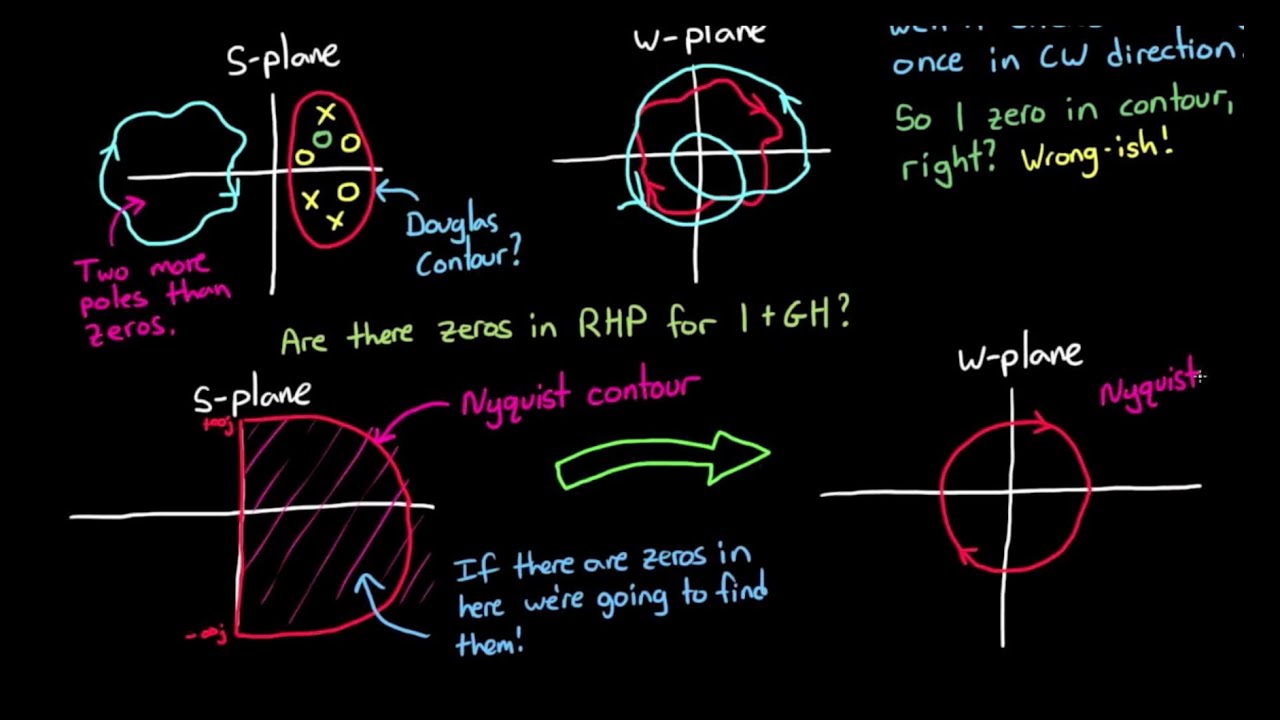 S-plane
W-plane
once in CW direction.
So 1 zero in contour,
right? Wrong-ish!
Douglas
Contour?
Two more
poles than
zeros.
Are there zeros in RHP for 1+GH?
S-plane
W-plane
Nyquist
Nyquist contour
+∞j
If there are zeros in
here we're going to find
them!
-∞j